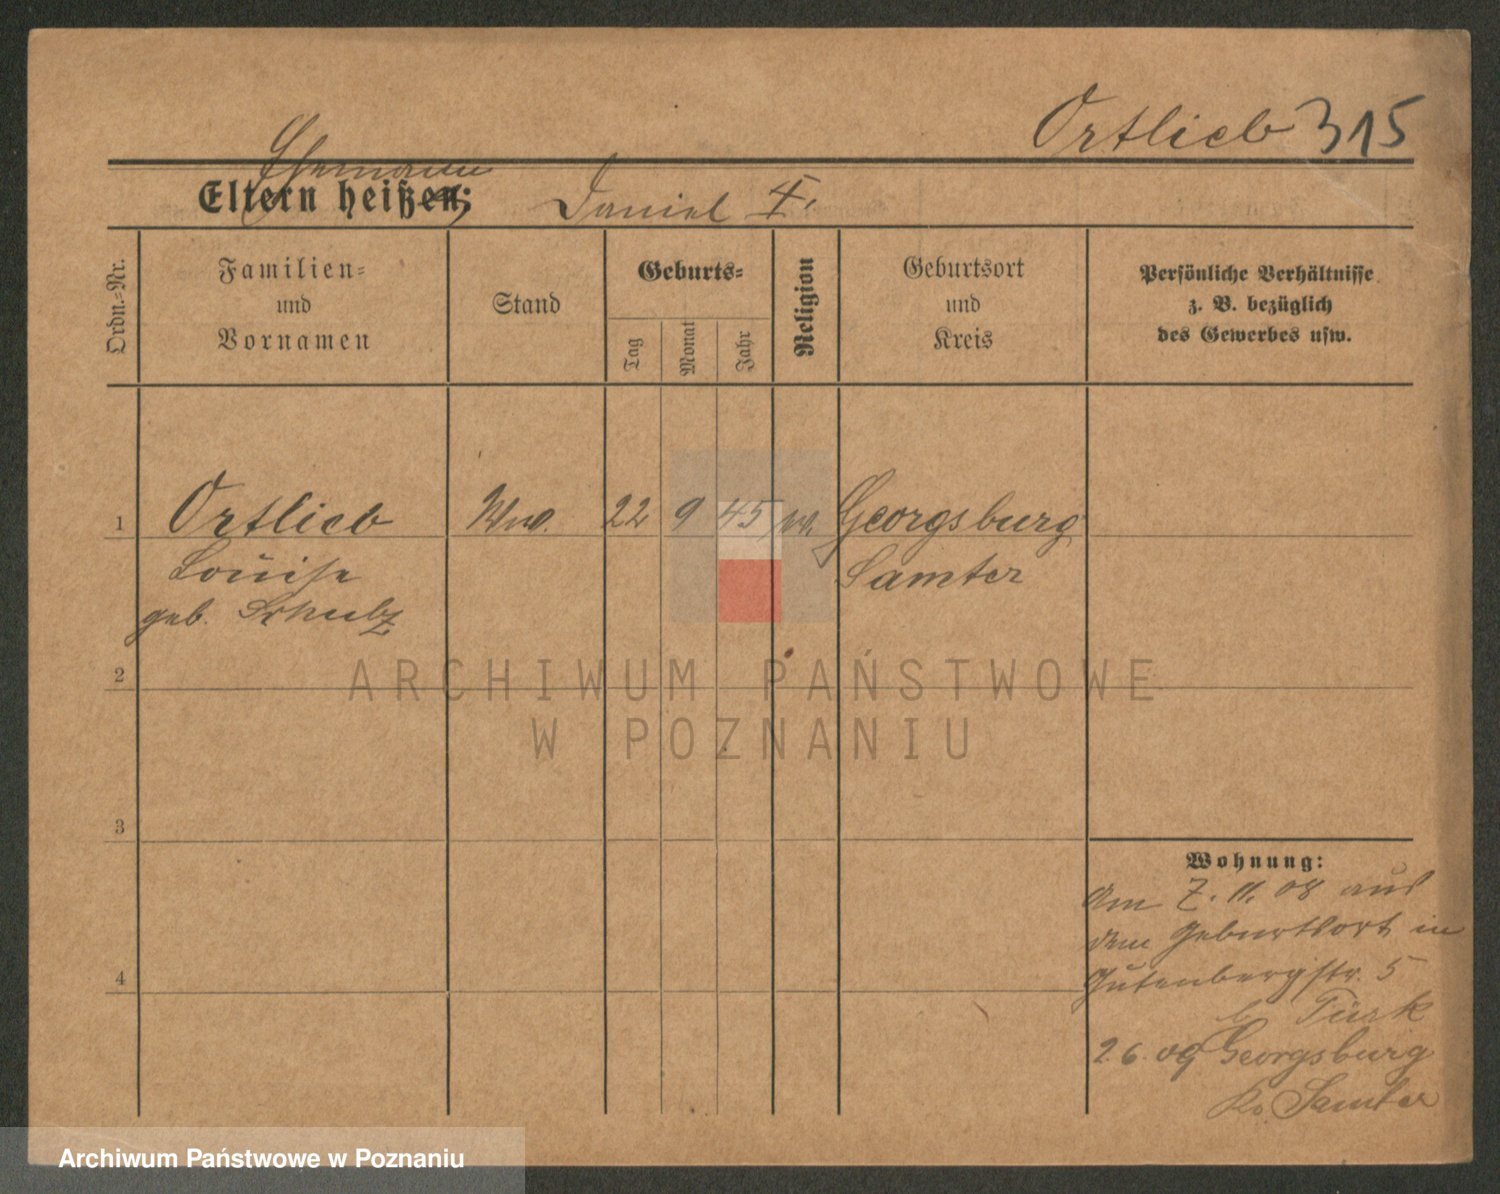 Ortlieb 315
Ehemann
Eltern heißen: Daniel †.
Ordn.-Nr.
Familien-
und
Vornamen
Stand
Geburts-
Tag
Monat
Jahr
Religion
Geburtsort
und
Kreis
Persönliche Verhältnisse
z. B. bezüglich
des Gewerbes usw.
1 Ortlieb Ww. 22 9 45 ev. Georgsburg
Louise Samter
geb. Schulz
2
3
4
Wohnung:
Am 7. 11. 08 aus
dem Geburtsort in
Gutenbergstr. 5
b. Türk
2.6.09 Georgsburg
Kr. Samter
ARCHIWUM PAŃSTWOWE
W POZNANIU
Archiwum Państwowe w Poznaniu